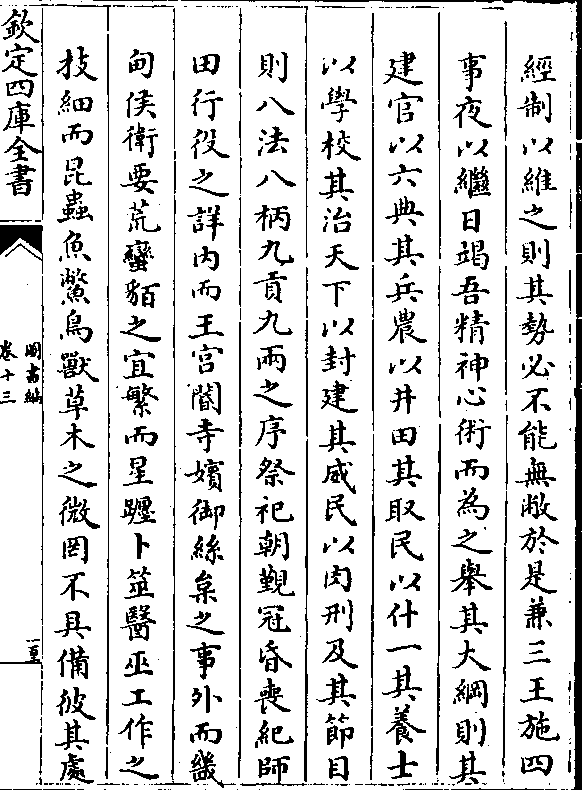 經制以維之則其勢必不能無敝於是兼三王施四
事夜以繼日竭吾精神心術而為之舉其大綱則其
建官以六典其兵農以井田其取民以什一其養士
以學校其治天下以封建其威民以肉刑及其節目
則八法八柄九貢九兩之序祭祀朝覲冠昏喪紀師
田行役之詳内而王宫閽寺嬪御絲枲之事外而畿
甸侯衛要荒蠻貊之宜繁而星躔卜筮醫巫工作之
技細而昆蟲魚鱉鳥獸草木之微罔不具備彼其處
欽定四庫全書
圖書編
卷十三